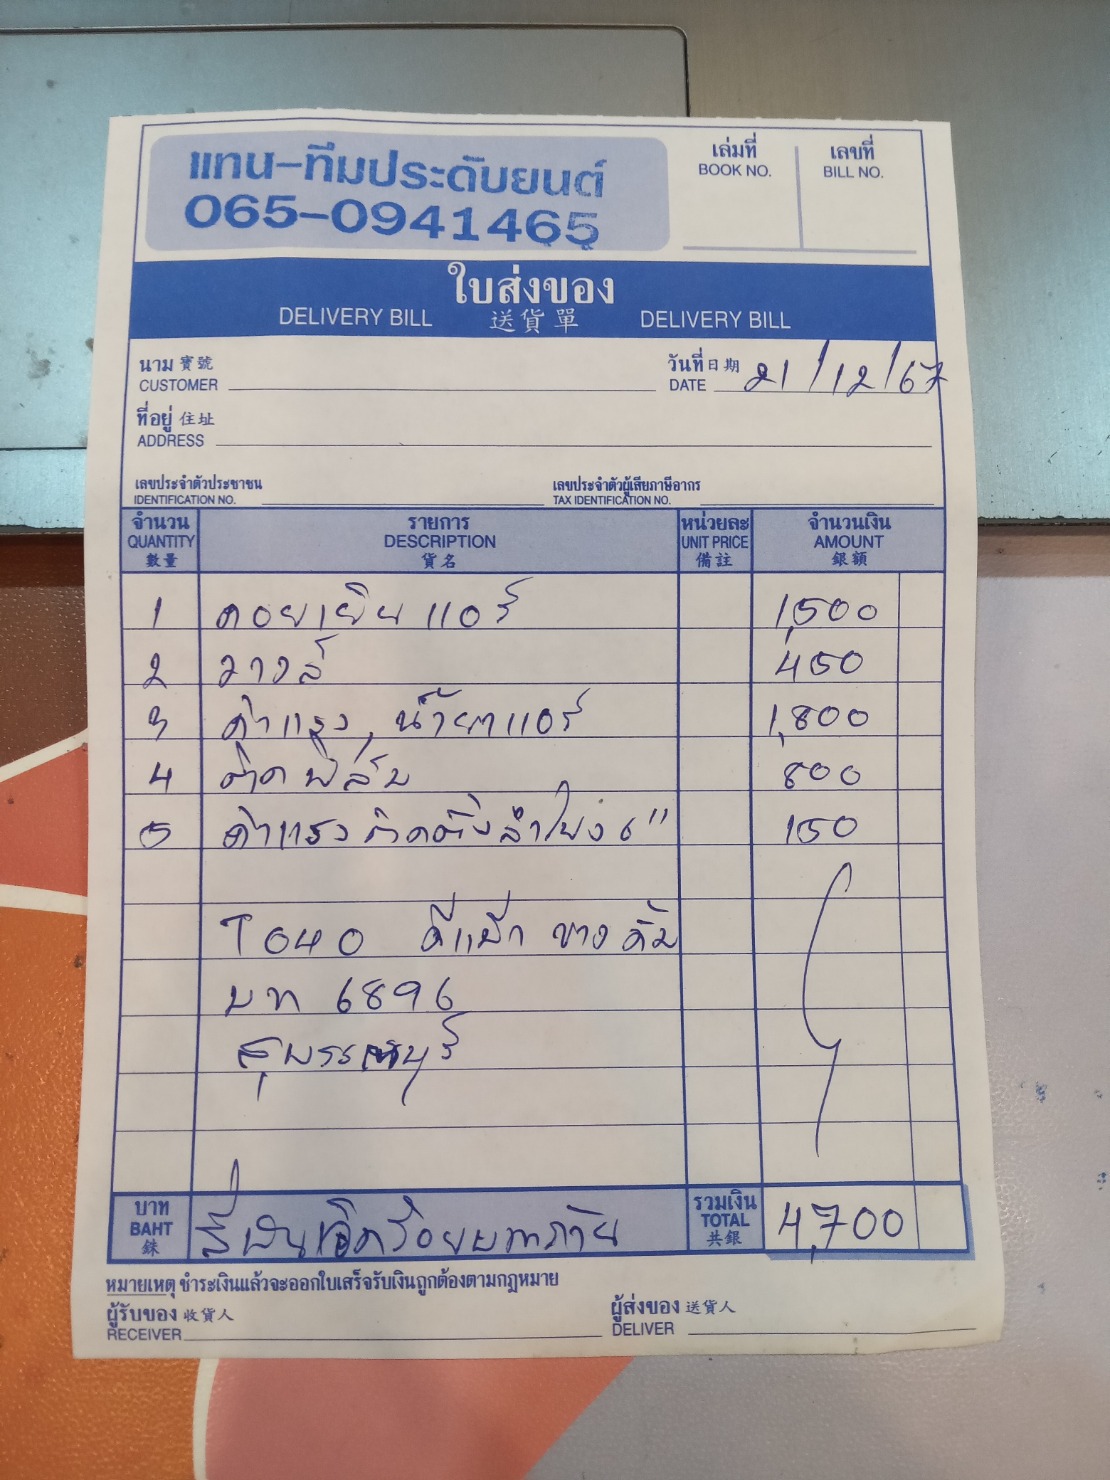 แทน-ทีมประดับยนต์
065-0941465
เล่มที่
BOOK NO.
เลขที่
BILL NO.
ใบส่งของ
DELIVERY BILL 送貨單 DELIVERY BILL
นาม 寶號
CUSTOMER
วันที่ 日期
DATE 21/12/67
ที่อยู่ 住址
ADDRESS
เลขประจำตัวประชาชน
IDENTIFICATION NO.
เลขประจำตัวผู้เสียภาษีอากร
TAX IDENTIFICATION NO.
จำนวน รายการ หน่วยละ จำนวนเงิน
QUANTITY DESCRIPTION UNIT PRICE AMOUNT
數量 貨名 備註 銀額
1 คอยเย็นแอร์ 1,500
2 วาวล์ 450
3 ค่าแรง, น้ำยาแอร์ 1,800
4 ติดฟิล์ม 800
5 ค่าแรง ติดตั้งลำโพง 6" 150
T040 ดีแม็ก
บท 6896
สุพรรณบุรี
บาท
BAHT
銖
สี่พันเจ็ดร้อยบาทถ้วน
รวมเงิน
TOTAL
共銀
4,700
หมายเหตุ ชำระเงินแล้วจะออกใบเสร็จรับเงินถูกต้องตามกฎหมาย
ผู้รับของ 收貨人
RECEIVER
ผู้ส่งของ 送貨人
DELIVER